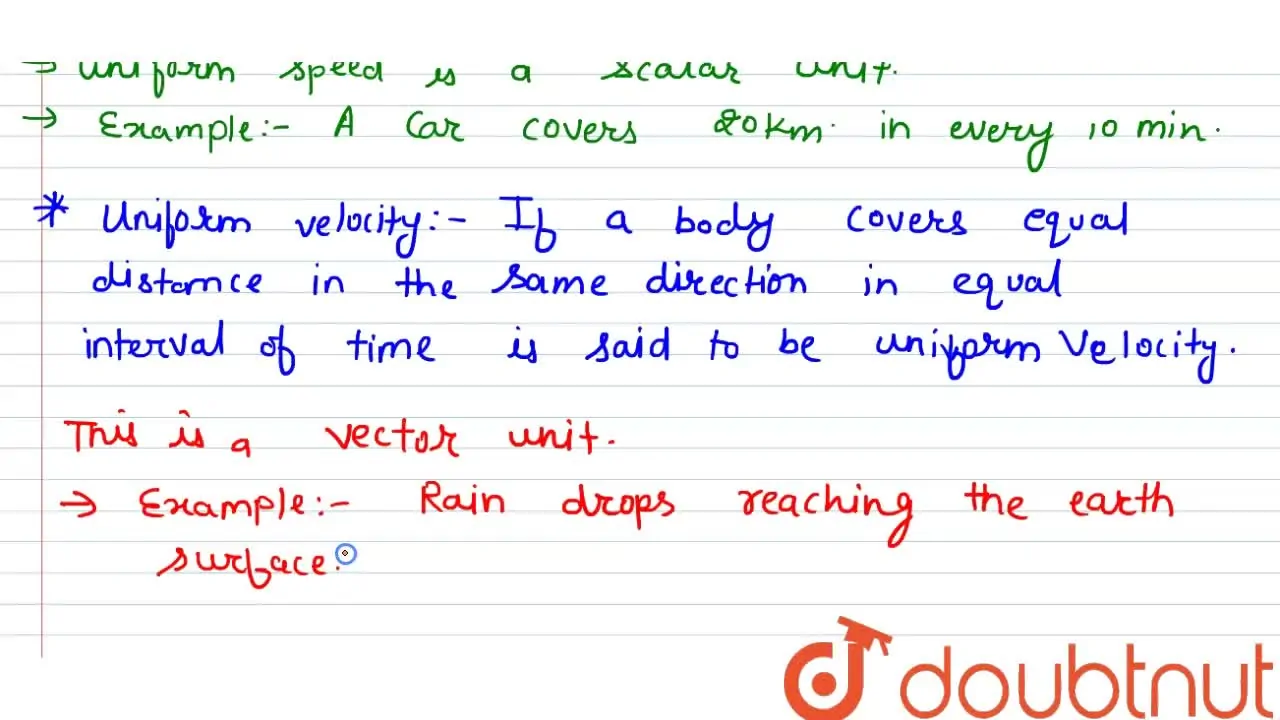 → Uniform speed is a scalar unit.
→ Example:- A Car covers 20Km. in every 10 min.
* Uniform velocity:- If a body covers equal
distance in the same direction in equal
interval of time is said to be uniform Velocity.
This is a vector unit.
→ Example:- Rain drops reaching the earth
surface.
doubtnut